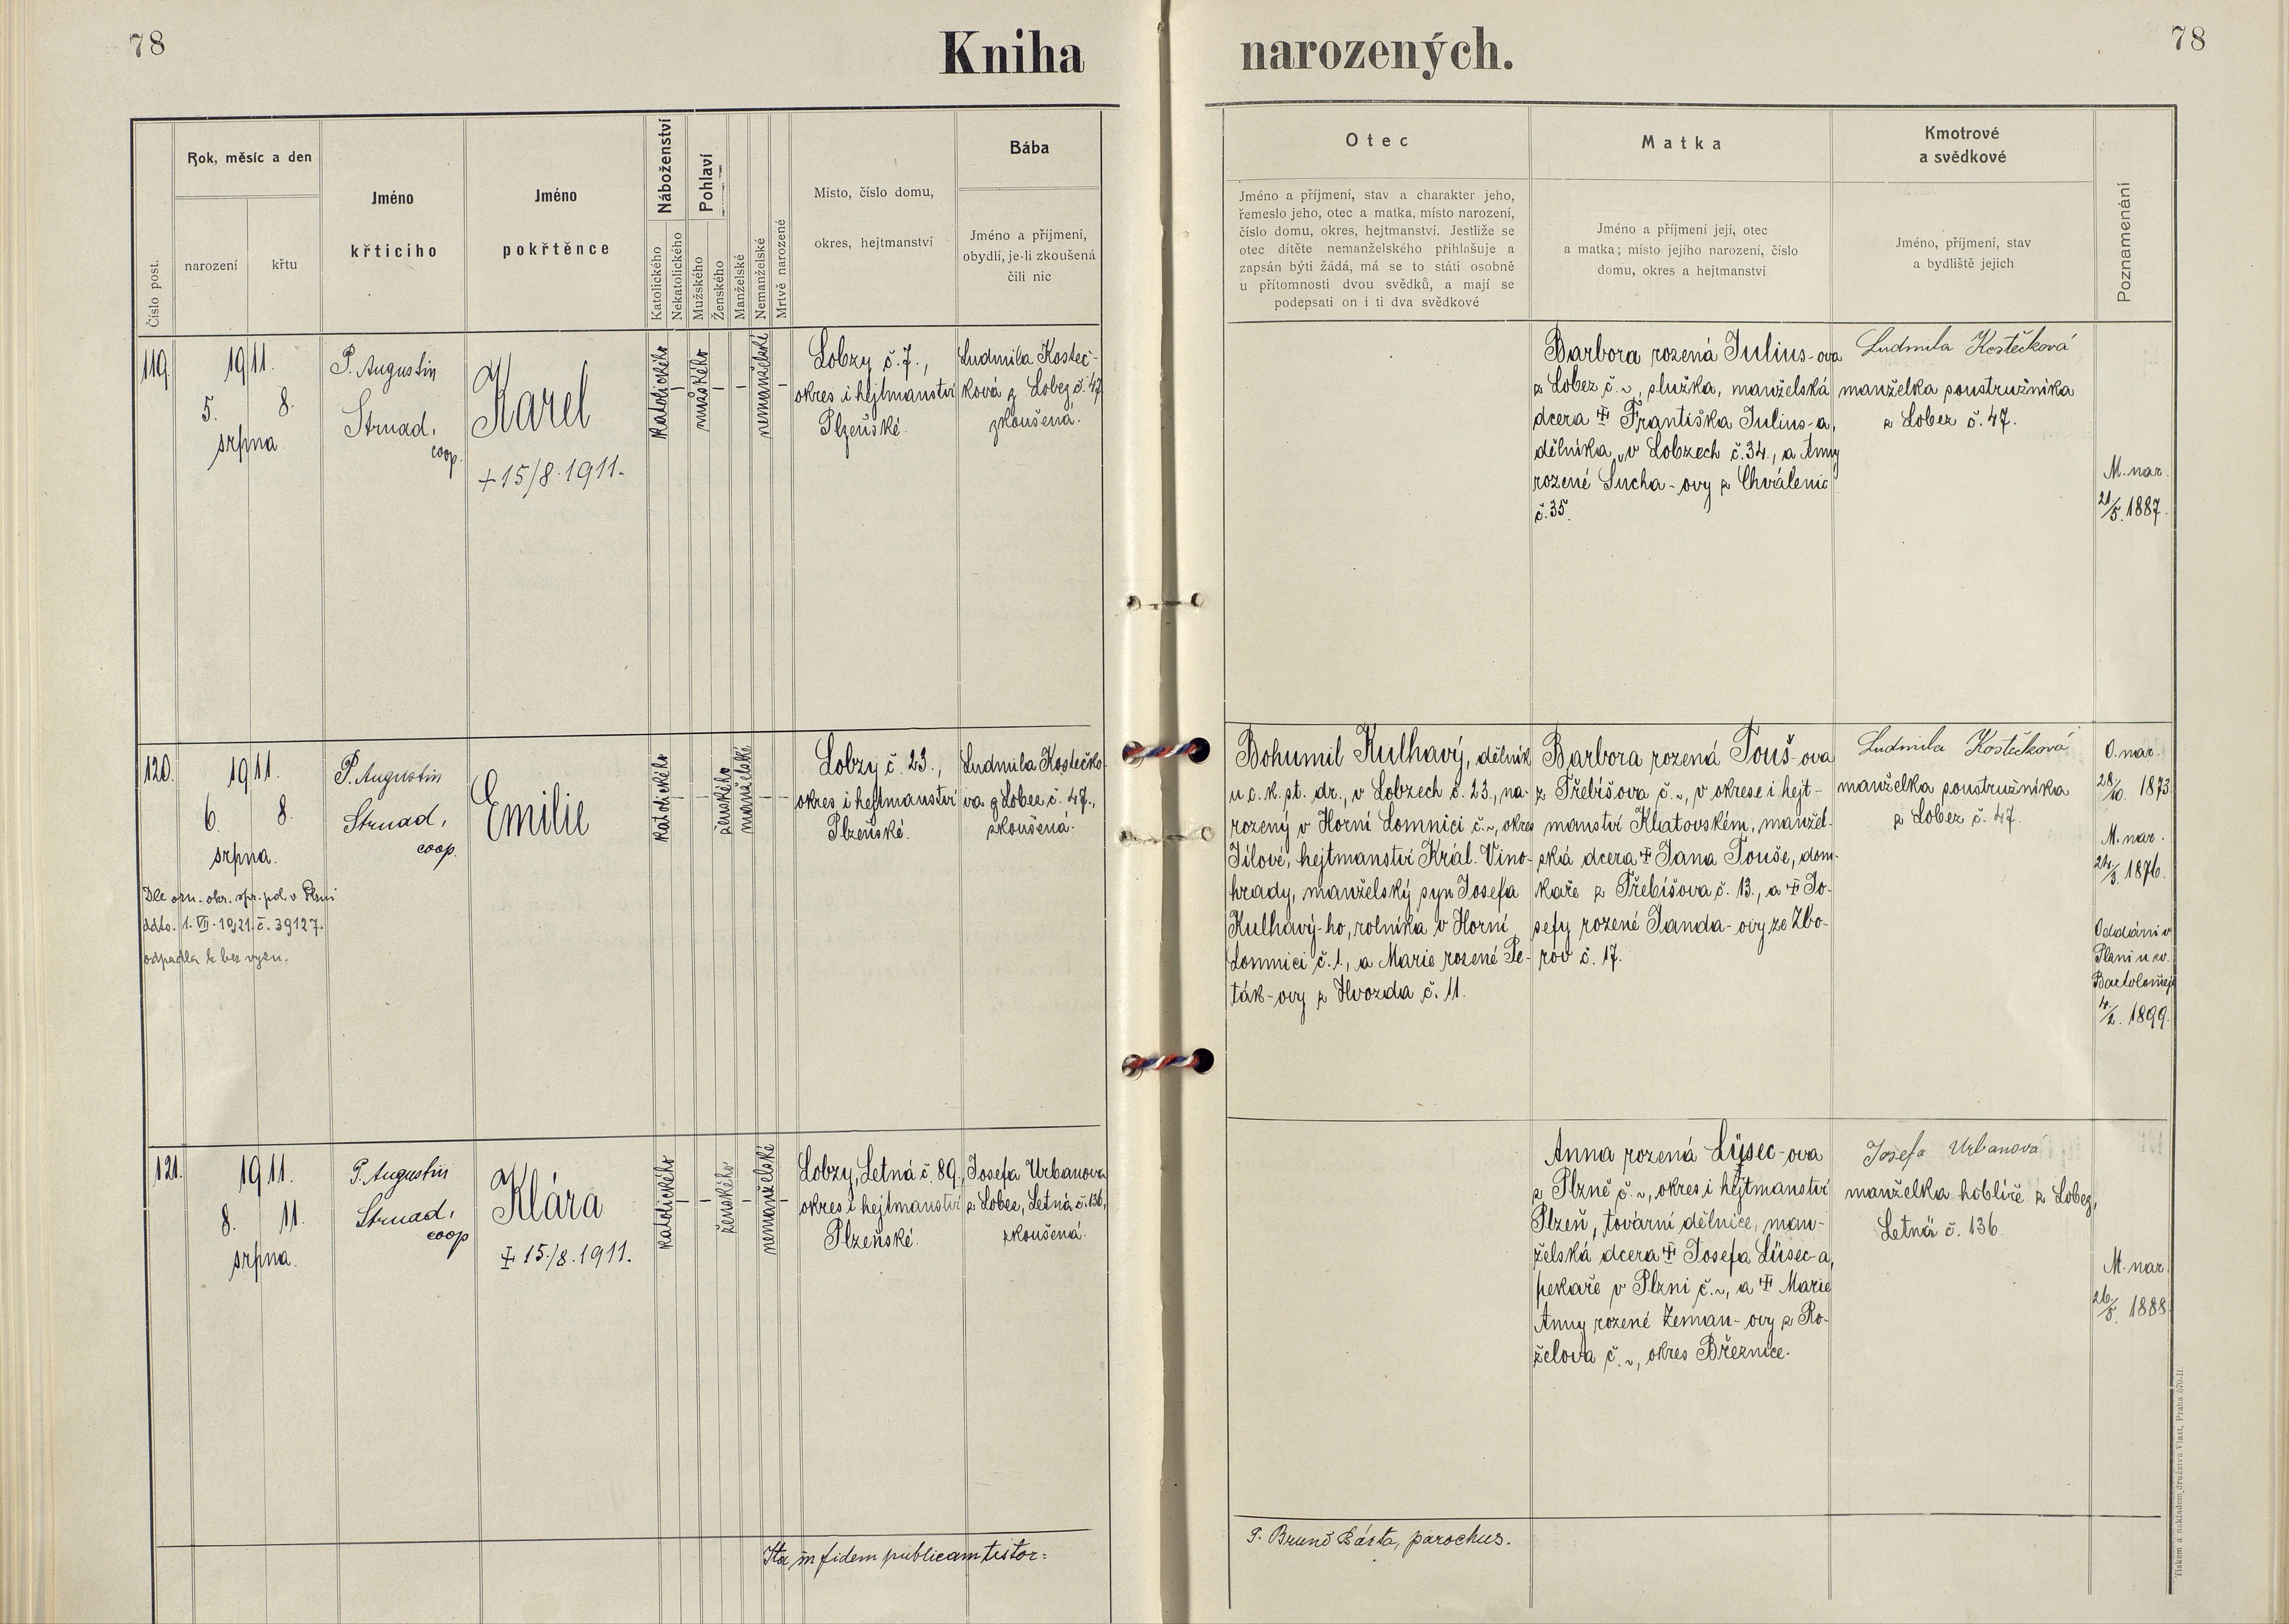 78
Kniha narozených.
78
Číslo post.
Rok, měsíc a den
narození
křtu
Jméno
křtícího
Jméno
pokřtěnce
Náboženství
Katolického
Nekatolického
Pohlaví
Mužského
Ženského
Manželské
Nemanželské
Mrtvě narozené
Místo, číslo domu,
okres, hejtmanství
Bába
Jméno a příjmení,
obydlí, je-li zkoušená
čili nic
Otec
Jméno a příjmení, stav a charakter jeho,
řemeslo jeho, otec a matka, místo narození,
číslo domu, okres, hejtmanství. Jestliže se
otec dítěte nemanželského přihlašuje a
zapsán býti žádá, má se to státi osobně
u přítomnosti dvou svědků, a mají se
podepsati on i ti dva svědkové
Matka
Jméno a příjmení její, otec
a matka; místo jejího narození, číslo
domu, okres a hejtmanství
Kmotrové
a svědkové
Jméno, příjmení, stav
a bydliště jejich
Poznamenání
119.
1911.
5. 8.
srpna.
P. Augustin
Strnad,
coop.
Karel
+ 15/8. 1911.
katolického
mužského
nemanželské
Lobzy č. 7.,
okres i hejtmanství
Plzeňské.
Ludmila Kosteč-
ková z Lobez č. 47,
zkoušená.
Barbora rozená Julius-ova
z Lobez č. ~, služka, manželská
dcera ✝ Františka Julius-a,
dělníka v Lobzech č. 34., a Anny
rozené Sucha-ovy z Chválenic
č. 35.
Ludmila Kostečková
manželka soustružníka
z Lobez č. 47.
M. nar.
21/5. 1887.
120.
1911.
6. 8.
srpna.
Dle ozn. okr. spr. pol. v Plzni
ddto. 1. VII. 1921. č. 39127.
odpadla k bez vyzn.
P. Augustin
Strnad,
coop.
Emilie
katolického
ženského
manželské
Lobzy č. 23.,
okres i hejtmanství
Plzeňské.
Ludmila Kostečko-
va z Lobez č. 47.,
zkoušená.
Bohumil Kulhavý, dělník
u c. k. st. dr., v Lobzech č. 23., na-
rozený v Horní Lomnici č. ~, okres
Jílové, hejtmanství Král. Vino-
hrady, manželský syn Josefa
Kulhavý-ho, rolníka v Horní
Lomnici č. 1., a Marie rozené Pe-
ták-ovy z Hvozda č. 11.
Barbora rozená Touš-ova
z Třebíšova č. ~, v okrese i hejt-
manství Klatovském, manžel-
ská dcera ✝ Jana Touše, dom-
kaře z Třebíšova č. 13., a ✝ Jo-
sefy rozené Janda-ovy ze Zbo-
rov č. 17.
Ludmila Kostečková
manželka soustružníka
z Lobez č. 47.
O. nar.
28/10. 1873.
M. nar.
24/3. 1876.
Oddáni v
Plzni u sv.
Bartoloměje
4/2. 1899.
121.
1911.
8. 11.
srpna.
P. Augustin
Strnad,
coop
Klára
✝ 15./8. 1911.
katolického
ženského
nemanželské
Lobzy, Letná č. 89.,
okres i hejtmanství
Plzeňské.
Josefa Urbanova
z Lobez, Letná č. 136,
zkoušená.
Anna rozená Lüsec-ova
z Plzně č. ~, okres i hejtmanství
Plzeň, tovární dělnice, man-
želská dcera ✝ Josefa Lüsec-a,
pekaře v Plzni č. ~, a ✝ Marie
Anny rozené Zeman-ovy z Ro-
želova č. ~, okres Březnice.
Josefa Urbanová
manželka hoblíře z Lobez,
Letná č. 136.
M. nar.
26/5. 1888.
Ita in fidem publicam testor:
P. Bruno Bárta, parochus.
Tiskem a nákladem družstva Vlast, Praha 570-II.